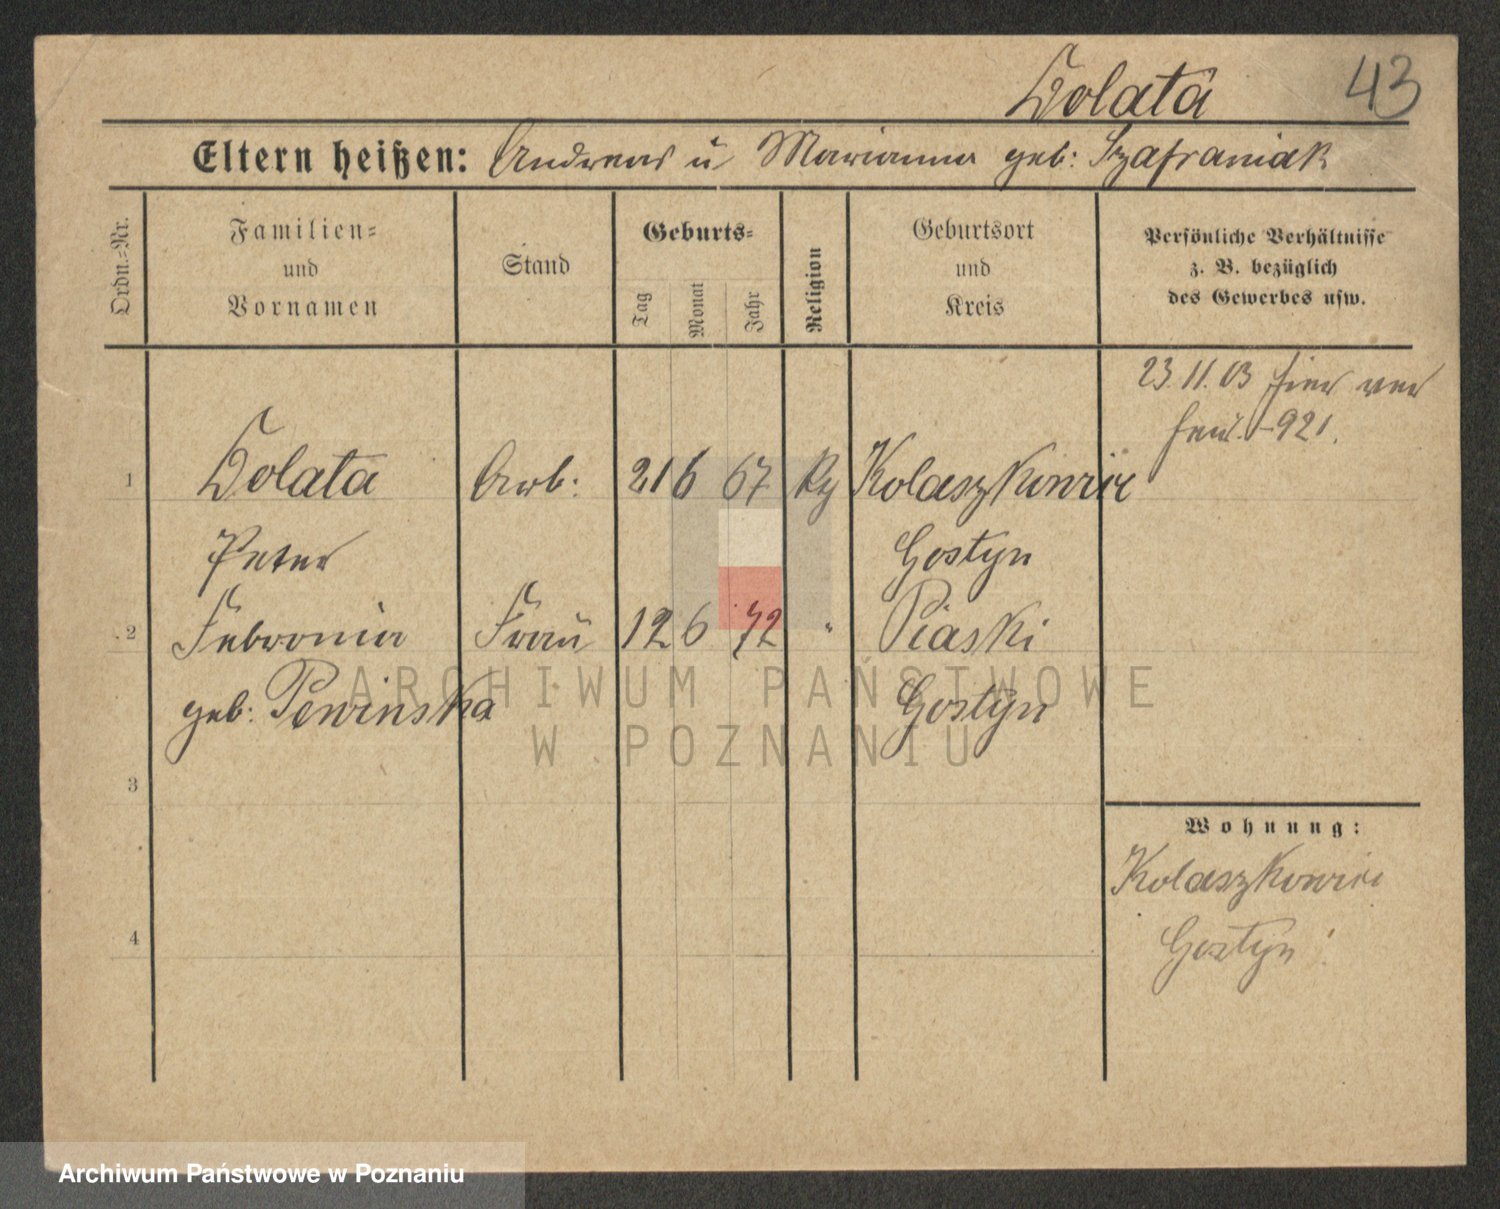 Dolata 43
Eltern heißen: Andreas u Marianna geb: Szafraniak
Ordn.-Nr.
Familien-
und
Vornamen
Stand
Geburts-
Tag
Monat
Jahr
Religion
Geburtsort
und
Kreis
Persönliche Verhältnisse
z. B. bezüglich
des Gewerbes usw.
23.11.03 hier ver
heir. -921.
1 Dolata Arb: 21 6 67 Kolaszkowice
Peter Gostyn
2 Febronia Frau 12 6 72 " Piaski
geb: Pewinska Gostyn
3
4
Wohnung:
Kolaszkowice
Gostyn
ARCHIWUM PAŃSTWOWE
W POZNANIU
Archiwum Państwowe w Poznaniu